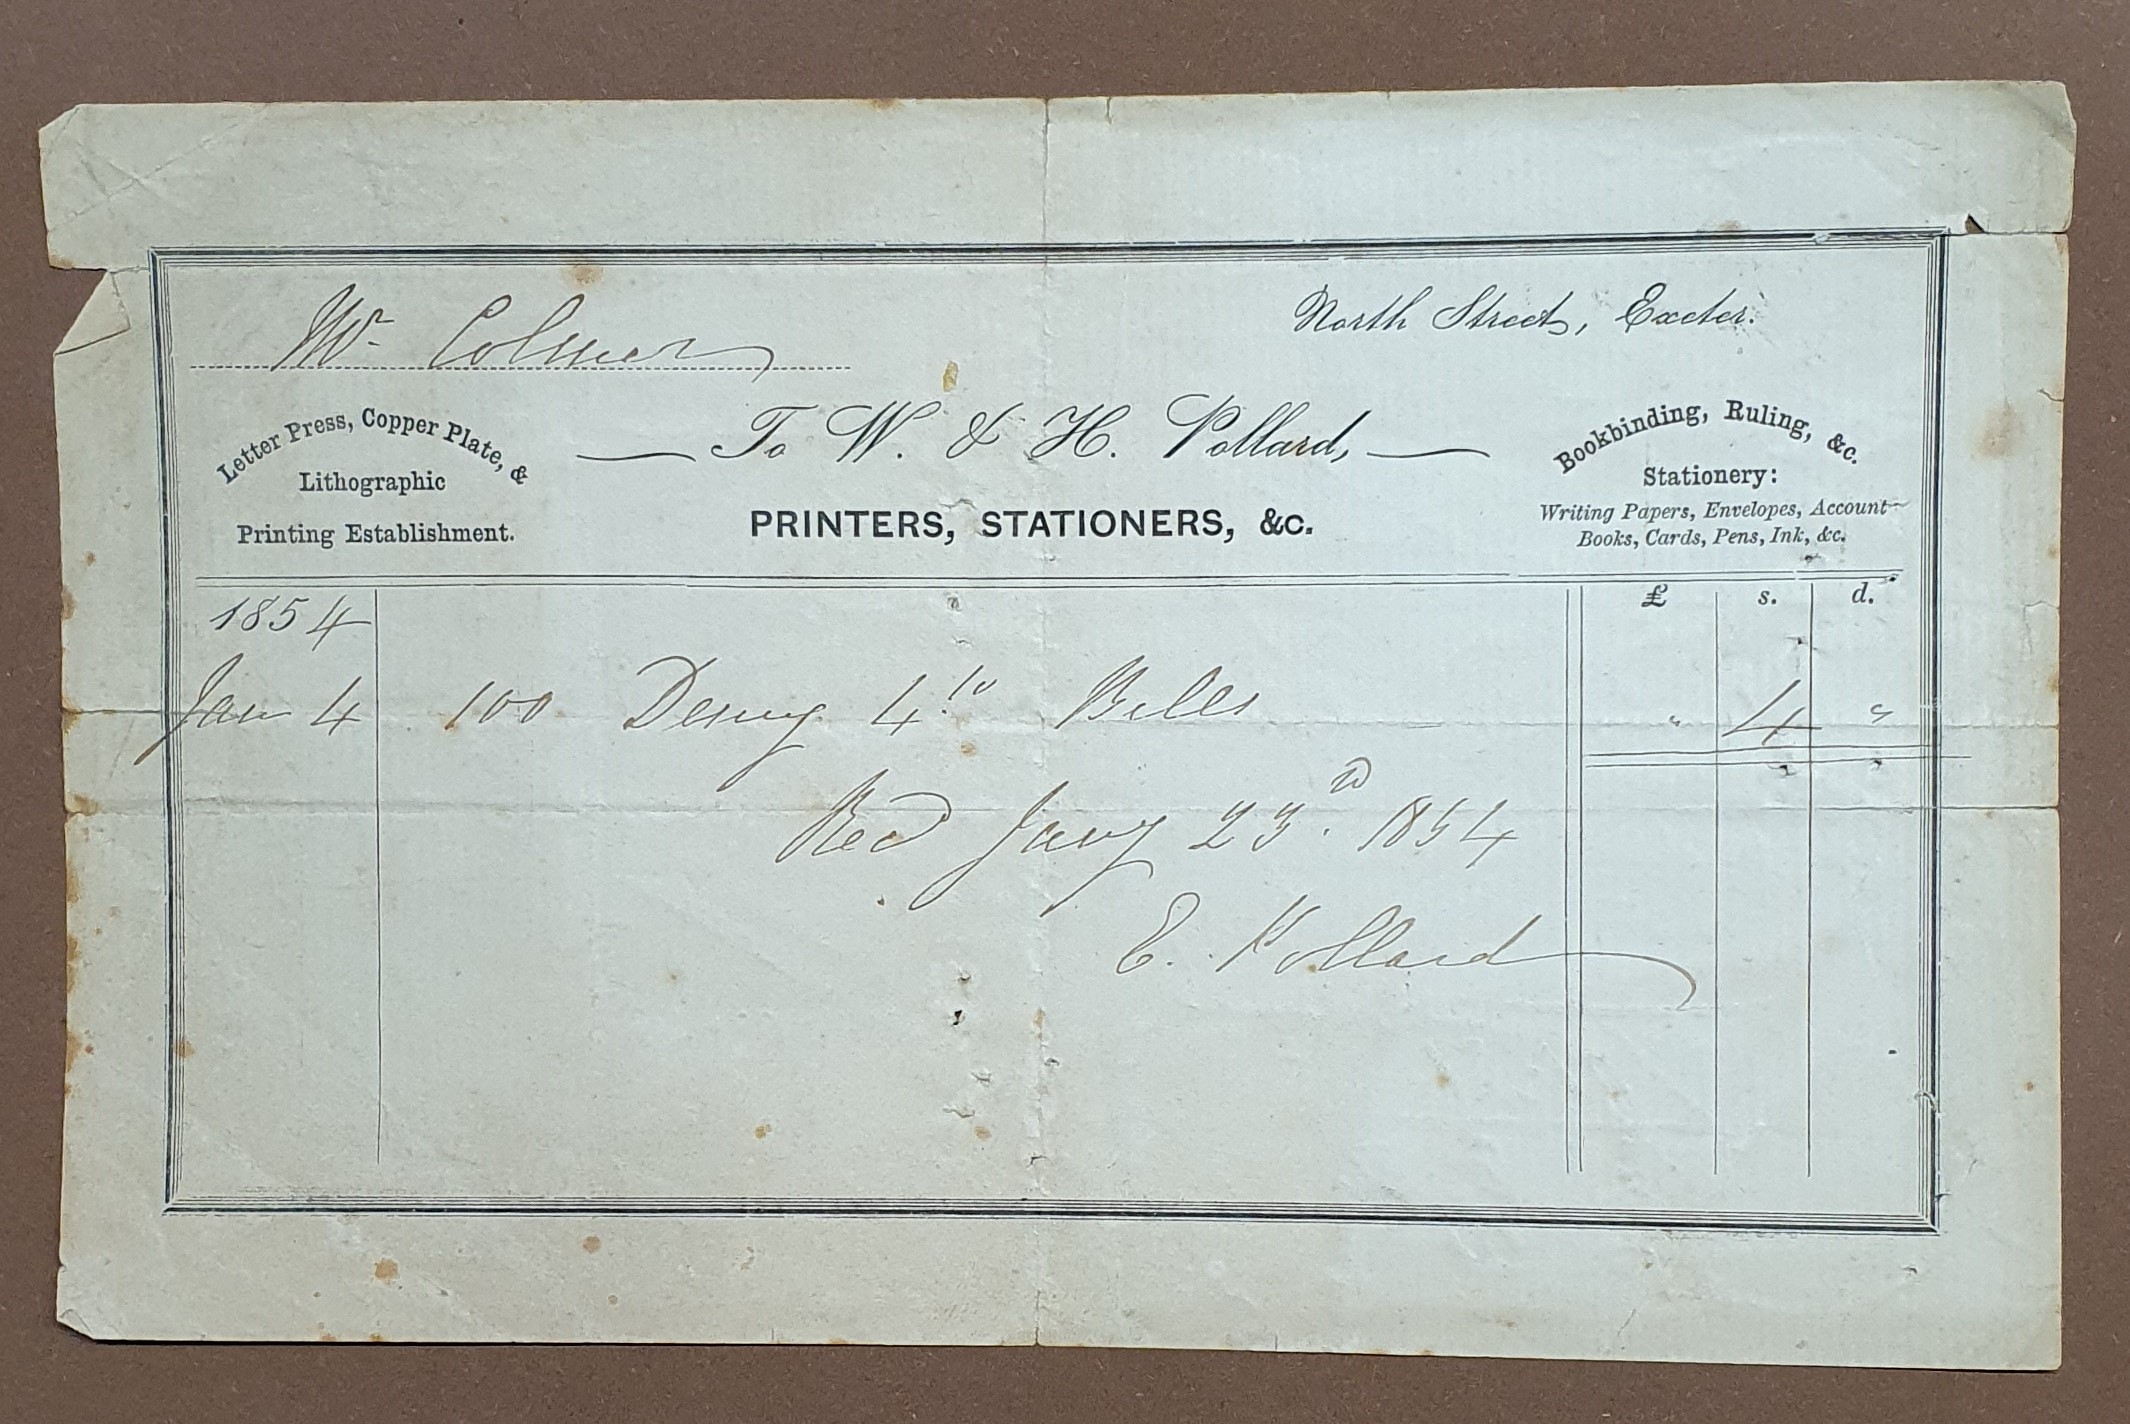 Mr. Colmer
North Street, Exeter.
To W. & H. Pollard,
PRINTERS, STATIONERS, &c.
Letter Press, Copper Plate, &
Lithographic
Printing Establishment.
Bookbinding, Ruling, &c.
Stationery:
Writing Papers, Envelopes, Account
Books, Cards, Pens, Ink, &c.
£ s. d.
1854
Jan 4 100 Demy 4.to Bills " 4 "
Recd Jany 23.d 1854
E. Pollard